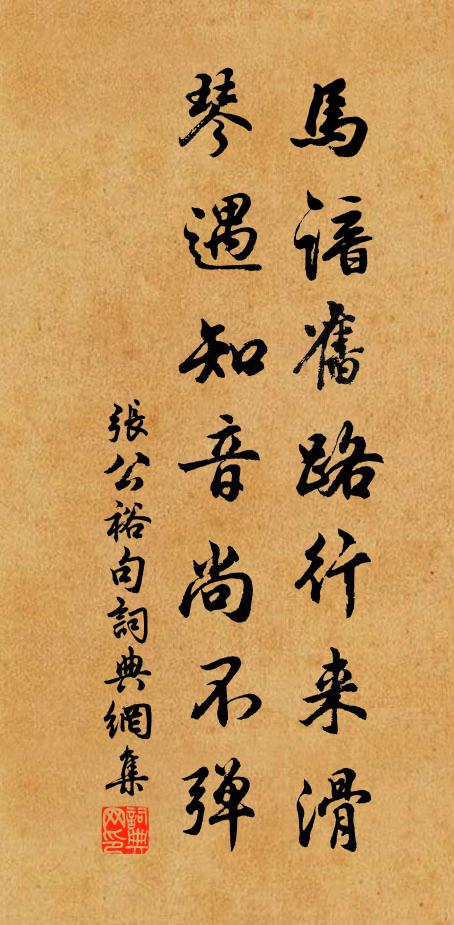 馬諳舊路行来滑
琴遇知音尚不弾
張公裕句詞典網集
詞典网印